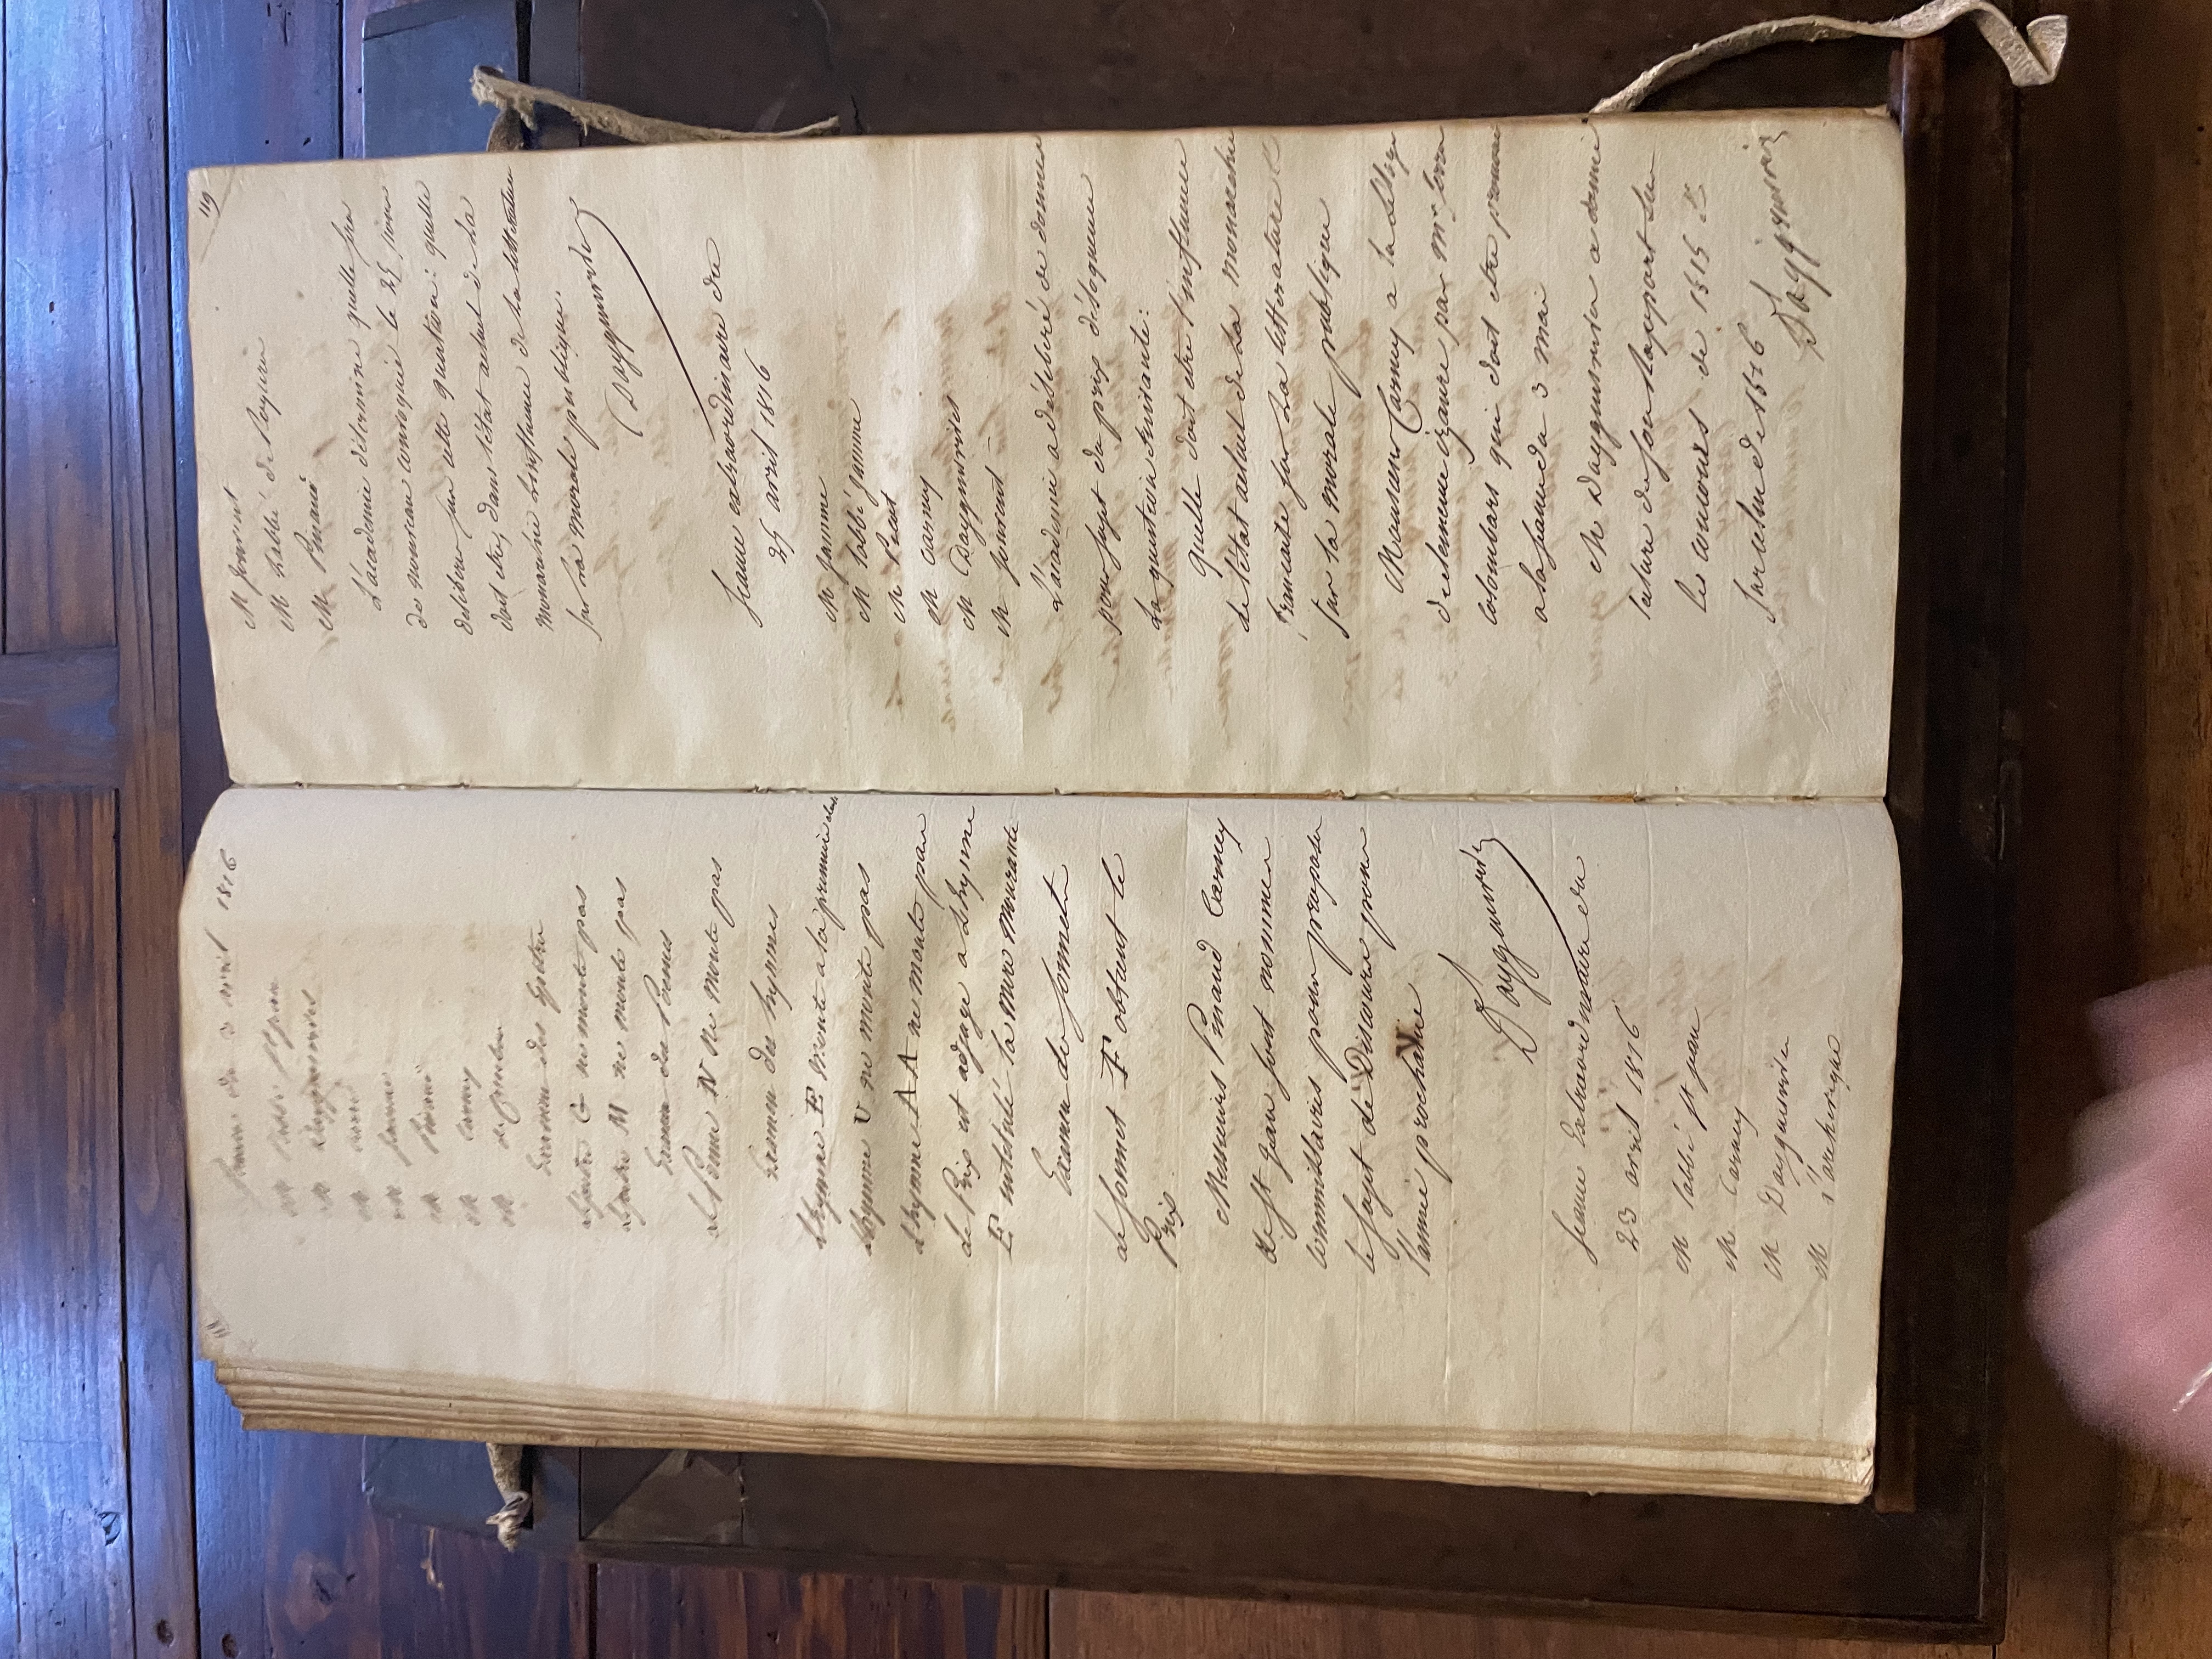 Seance du 3 avril 1816
M l'abbé st jean
M Dayguesvives
M
M jamme
M Pinaud
M Carney
M
Examen des Epitres
L'epitre G ne monte pas
L'epitre M ne monte pas
Examen des Poemes
le Poeme N ne monte pas
Examen des hymnes
L'hymne E monte a la premiere
L'hymne U ne monte pas
L'hymne AA ne monte pas
le Prix est adjugé a L'hymne
E intitulé la mere mourante
Examen des sonnets
le sonnet F obtient le
Prix.
Messieurs Pinaud Carney
de st jean sont nommes
commissaires pour proposer
le sujet de Discours pour
l'année prochaine
Dayguesvives
Seance Extraordinaire du
23 avril 1816
M l'abbé st jean
M Carney
M Dayguesvives
M
119
M jouvent
M L'abbé de Seguin
M Pinaud
L'academie determine quelle sera
de nouveau convoquée le 25 pour
deliberer sur cette question: quelle
doit etre, dans l'état actuel de la
monarchie L'influence de la littérature
sur la morale publique.
Dayguesvives
Seance extraordinaire du
25 avril 1816
M jamme
M l'abbé jamme
M
M Carney
M Dayguesvives
M jouvent
L'academie a deliberé de donner
pour sujet du prix d'eloquence
La question suivante:
quelle doit etre l'influence
de l'état actuel de la monarchie
francaise sur la litterature &
sur la morale publique
Monsieur Carney a lu l'eloge
de clemence izaure par Mr
qui doit etre prononcé
a la seance du 3 mai
M Dayguesvives a donné
lecture de son Rapport sur
le concours de 1815 &
sur celui de 1816
Dayguesvives